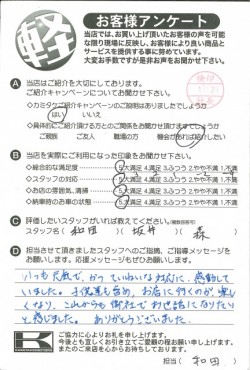 軽
お客様アンケート
当店では、お買い上げ頂いたお客様の声を可能な限り現場に反映し、お客様により良い商品とサービスを提供する事に努めています。
大変お手数ですが是非お声をお聞かせ下さい。
A 当店はご紹介を大切にしております。
ご紹介キャンペーンについてお聞かせ下さい。
はい いいえ
ご親族 ご友人 職場の方 機会があれば紹介したい
B 当店を実際にご利用になった印象をお聞かせ下さい。
◇総合的な満足度 5.大満足 4.満足 3.ふつう 2.やや不満 1.不満
◇スタッフの対応 5.大満足 4.満足 3.ふつう 2.やや不満 1.不満
◇お店の雰囲気、清掃 5.大満足 4.満足 3.ふつう 2.やや不満 1.不満
◇納車時のお車の状態 5.大満足 4.満足 3.ふつう 2.やや不満 1.不満
C 評価したいスタッフがいれば教えてください。(複数回答可)
スタッフ名( 和田 )( 坂井 )( 森 )
D 担当させて頂きましたスタッフへのご指摘、ご指導メッセージをお願いします。応援メッセージもぜひお願いします。
いつも元気で、かつていねいな対応に、感動して
いました。子供達も含め、お店に行くのが、楽し
くなり、これからも御社でお世話になりたい
と感じました。ありがとうございました。
K
ご協力に心よりお礼を申し上げます。
今後とも宜しくお引き立てご愛顧の程お願い申し上げます。
またのご来店を心からお待ちしております。
担当( 和田 )